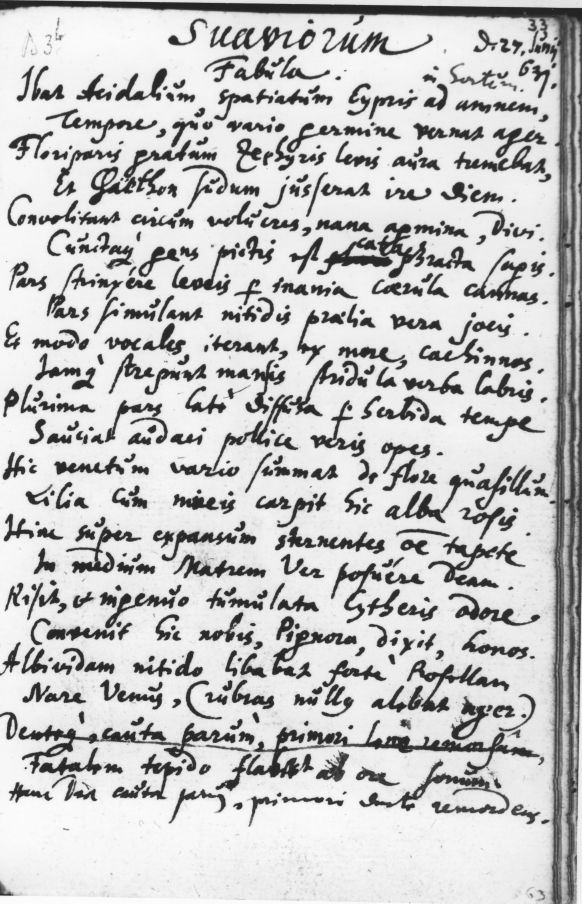 33
D 3 b
Suaviorum
D. 27. Junij
631.
Fabula.
in hortum
Ibat Acidalium spatiatum Cypris ad amnem,
Tempore, quo vario germine vernat ager.
Floriparis pratum Zephyris levis aura tremebat,
Et Phaëthon sudum jusserat ire diem.
Convolitant circum volucres, nana agmina, Divi.
Cunctaq́ gens pictis est phracta supis.
Pars stringére leveis p inania cærula cannas.
Pars simulant nitidis prælia vera jocis.
Et modo vocales iterant, ex more, cachinnos.
Jamq́ strepunt mansis stridula verba labris.
Plurima pars latè diffusa p herbida tempe
Sauciat audaci pollice veris opes.
Hic venetum vario summat de flore quasillum
Lilia cum niveis carpit hic alba rosis
Hinc super expansum sternentes tapete
In medium Matrem Ver posuére Deam.
Risit, & ingenuo tumulata Cytheris odore
Convenit hic nobis, Pignora, dixit, honos.
Albividam nitido libabat fortè Rosellam
Nare Venus, (rubras nullq alebat ager.)
Denteq́, cauta parum, primori leve remorsam,
Fatalem tepido flavit ab ore sonum.
Hanc Dea cauta parum, primori dente remordens.
63